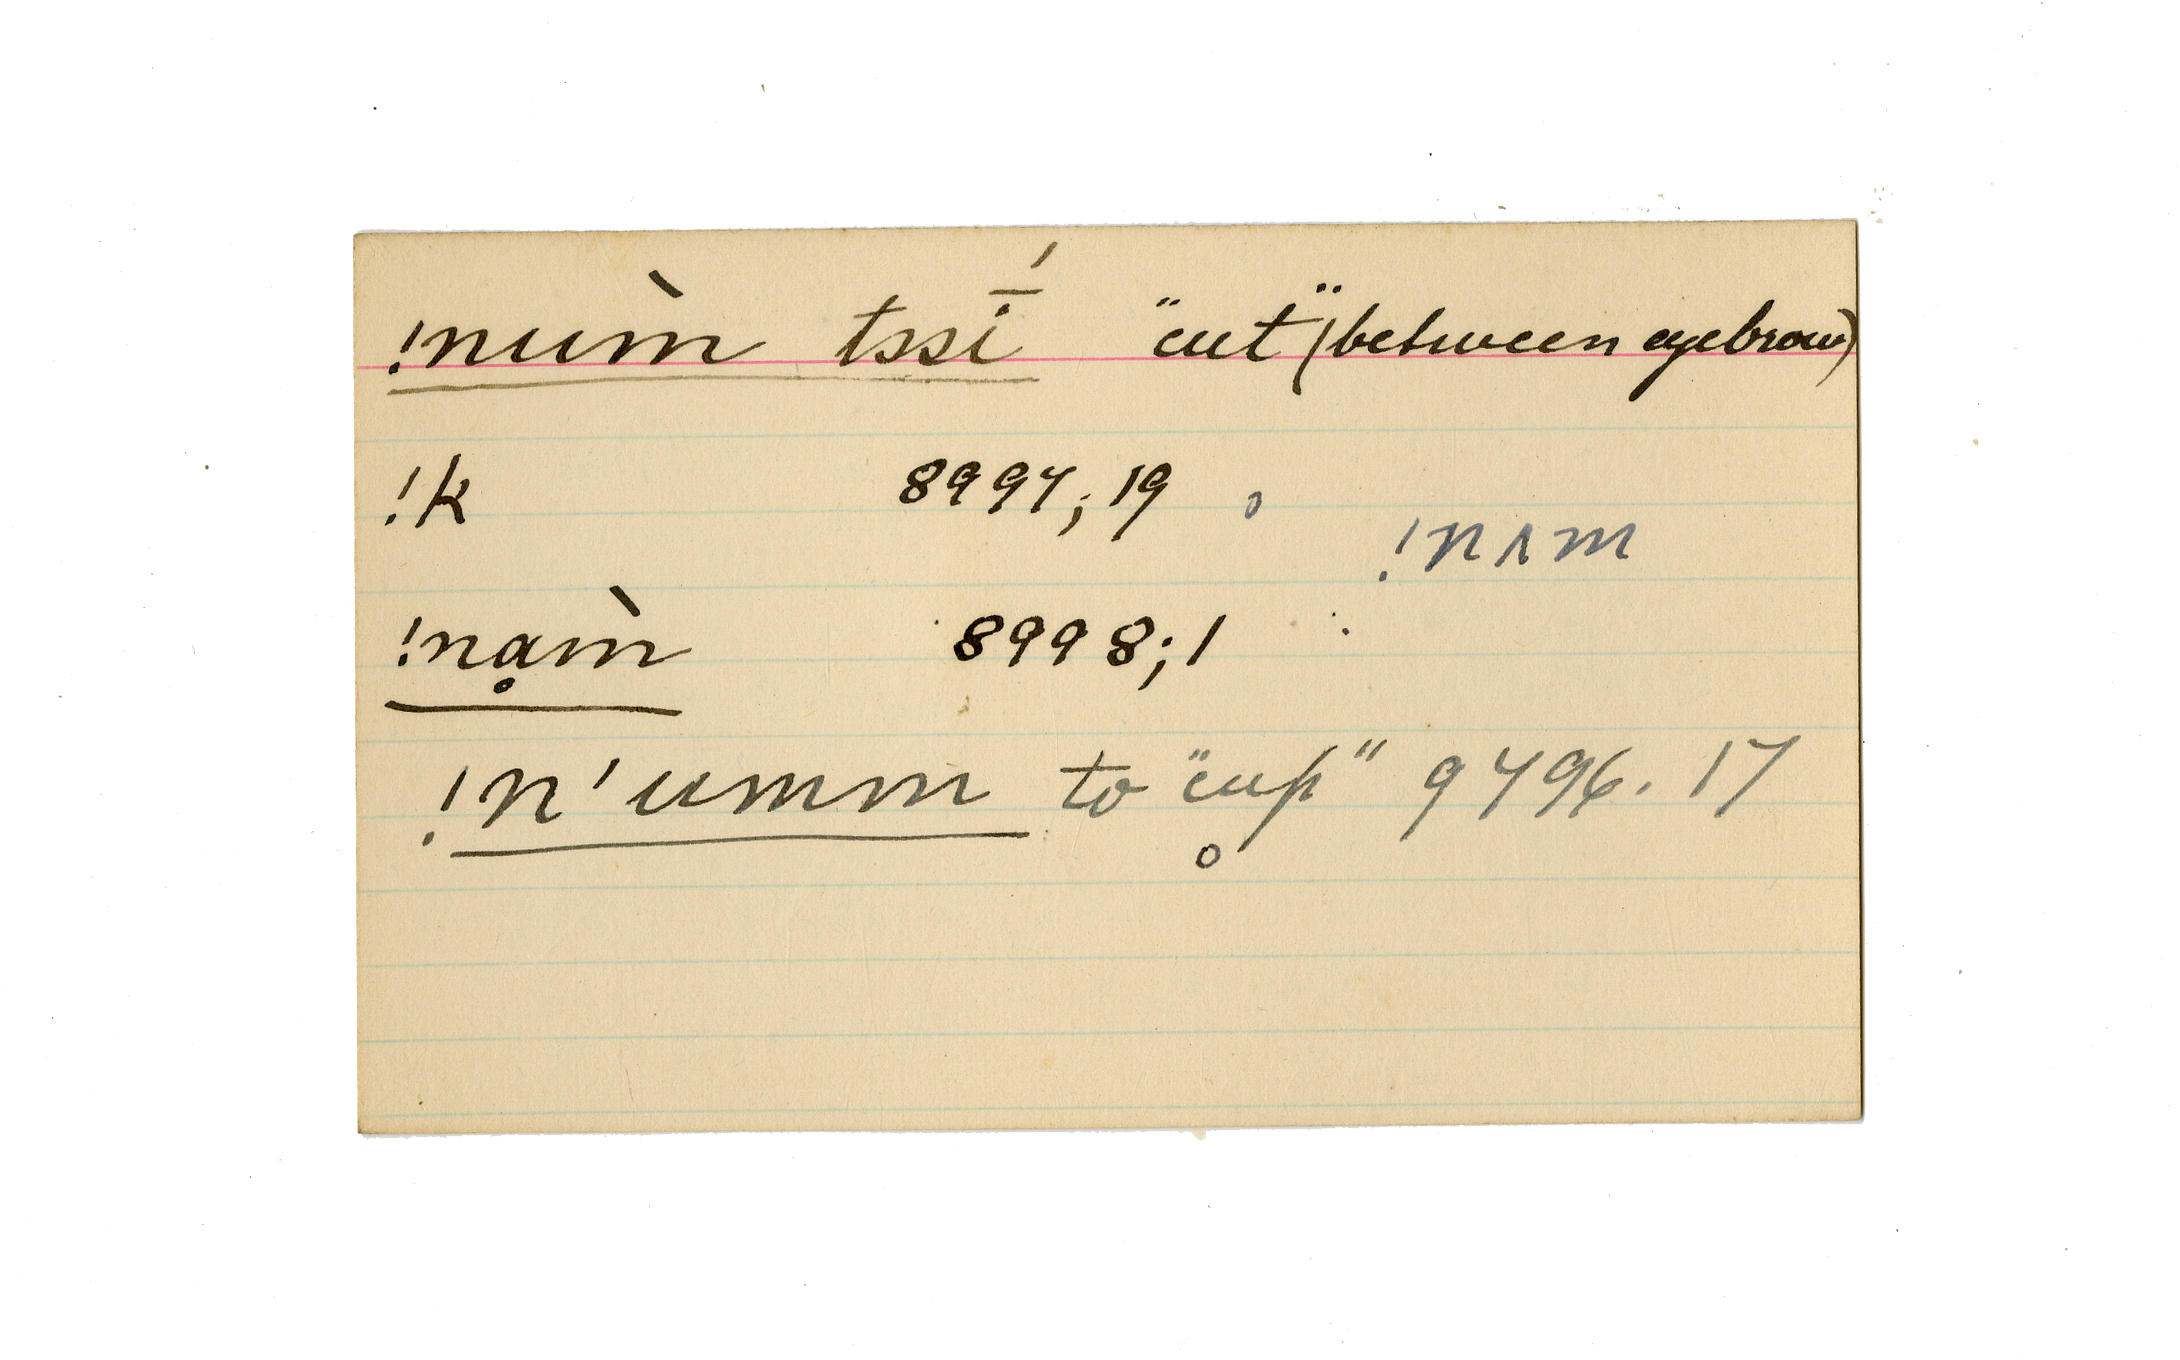 !nùm tssi̅́ "cut" (between eyebrow)
!k 8997; 19
!nʌm
!nạ̀m 8998; 1
!n'umm to "cup" 9796. 17